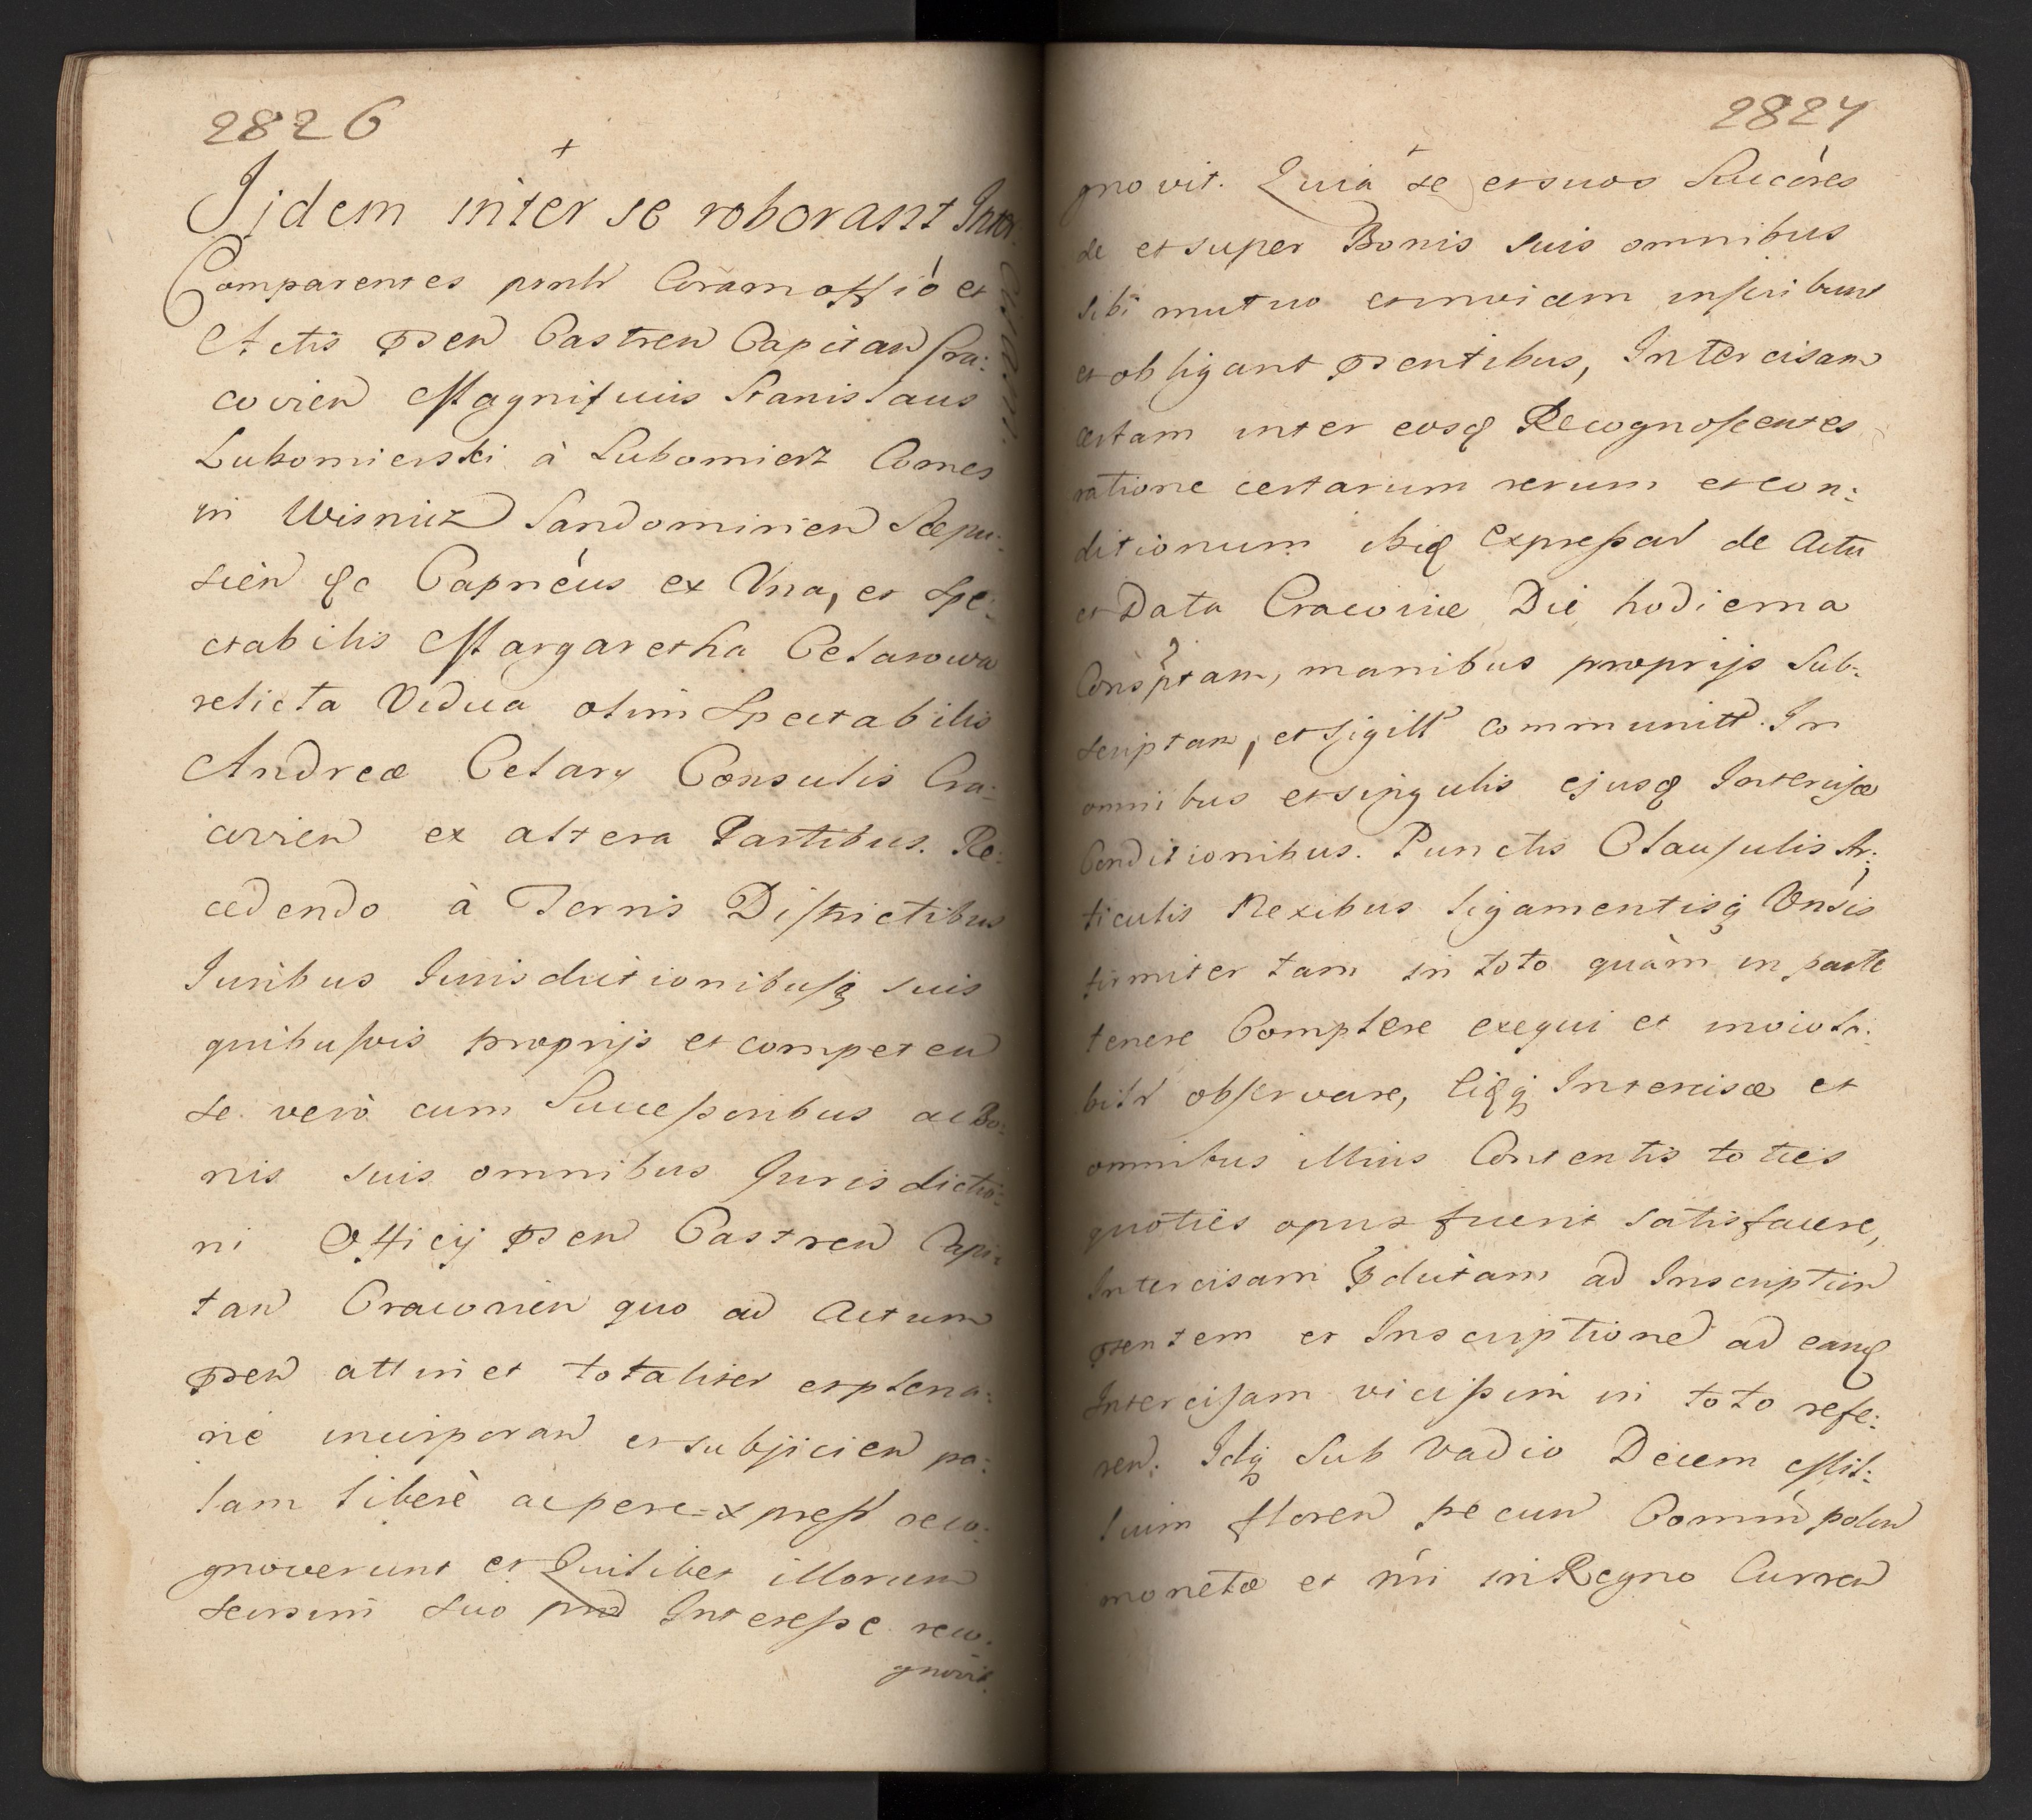 2826
Jidem inter se roborant Inter
Comparentes psnlr Coram offio et
Actis psen Castren Capitan Cra:
covien Magnificus Stanislaus
Lubomierski à Lubomierz Comes
in Wisnicz Sandomirien Scepu:
sien &c Capneus ex Una, et Spe:
ctabilis Margaretha Celarowa
relicta Vidua olim Spectabilis
Andreæ Celary Consulis Cra:
covien ex altera Partibus. Re:
cedendo à Terris Districtibus
Juribus Jurisdictionibusq suis
quibusvis proprijs et competen
se verò cum Successoribus ac Bo:
nis suis omnibus Jurisdictio:
ni Officij psen Castren Capi:
tan Cracovien quo ad Actum
psen attinet totaliter et plena:
rie incorporan et subjicien pa:
lam liberè ac per expresse reco:
gnoverunt et Quilibet illorum
seorsim suo Interesse reco:
gnovit.
2827
gnovit. Quia se et suos Succores
de et super Bonis suis omnibus
sibi mutuo et invicem inscribunt
et obligant psentibus, Intercisam
certam inter eosq Recognoscentes
ratione certarum rerum et con:
ditionum ibiq expressar de Actu
et Data Cracoviæ Die hodierna
Consptam, manibus proprijs Sub:
scriptam, et sigill communitt. In
omnibus et singulis ejusq Intercisæ
Conditionibus. Punctis Clausulis Ar:
ticulis Nexibus ligamentisq Unsis
firmiter tam in toto quàm in parte
tenere Complere exequi et inviola:
bilr observare, Intercisæ et
omnibus illius Contentis toties
quoties opus fuerit satisfacere,
Intercisam pdictam ad Inscription
psentem et Inscriptione ad eanq
Intercisam vicissim in toto refe:
ren. Idq Sub Vadio Decem Mil:
lium floren pecun Commi polon
monetæ et nri in Regno Curren